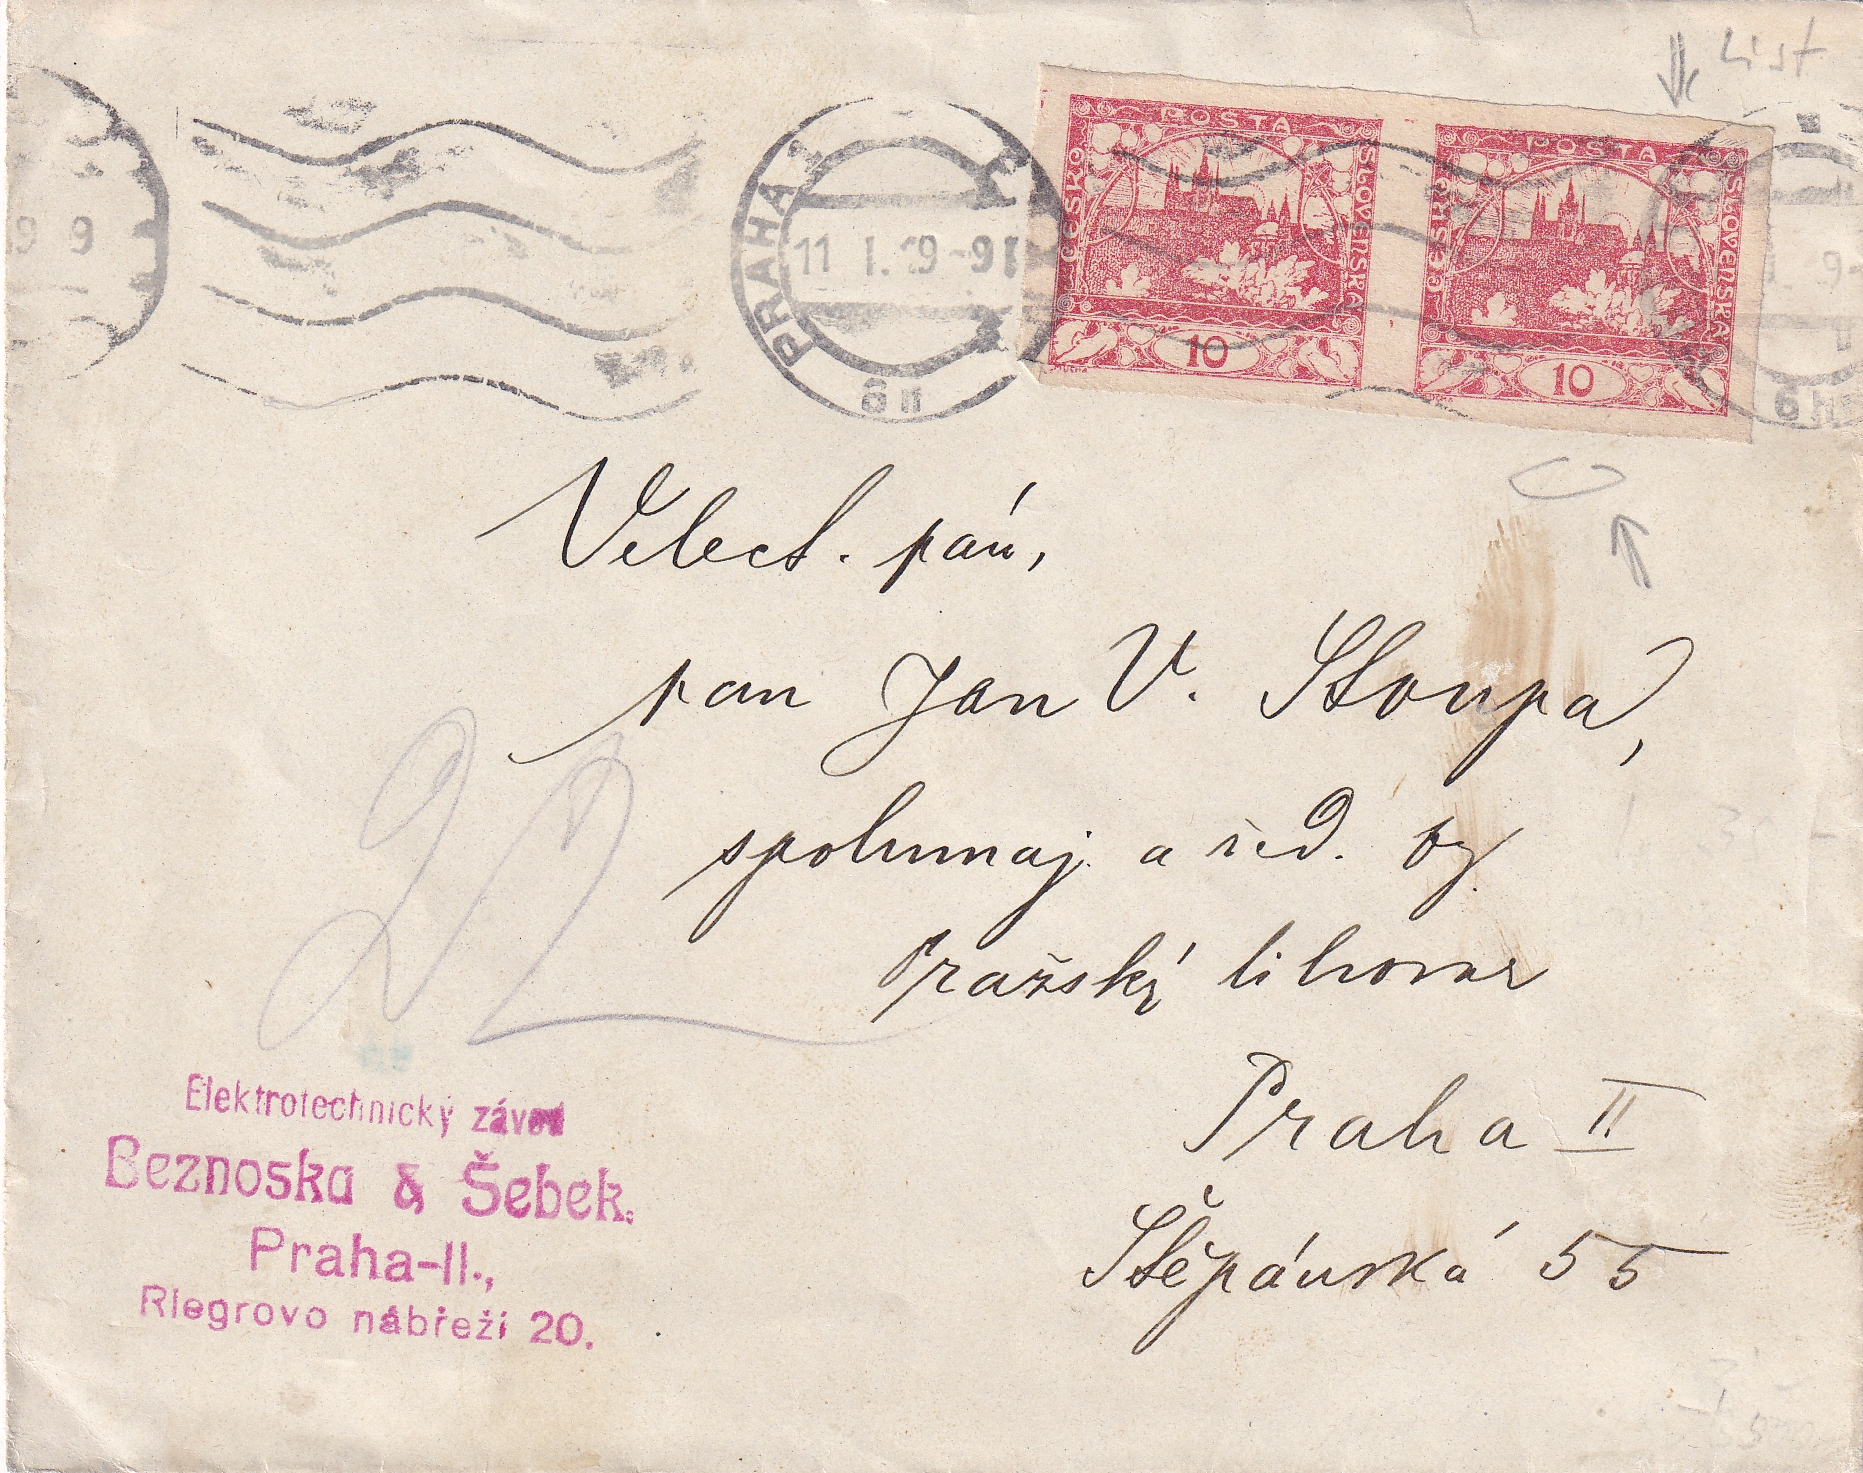 List
PRAHA
11 I. 19 - 9
POŠTA
ČESKO
SLOVENSKÁ
10
POŠTA
ČESKO
SLOVENSKÁ
10
Velect. pán,
pan Jan V. Stoupa,
spolumaj. a řed. fy
Pražský lihovar
Praha II
Štěpánská 55
Elektrotechnický závod
Beznoska & Šebek.
Praha-II.,
Riegrovo nábřeží 20.